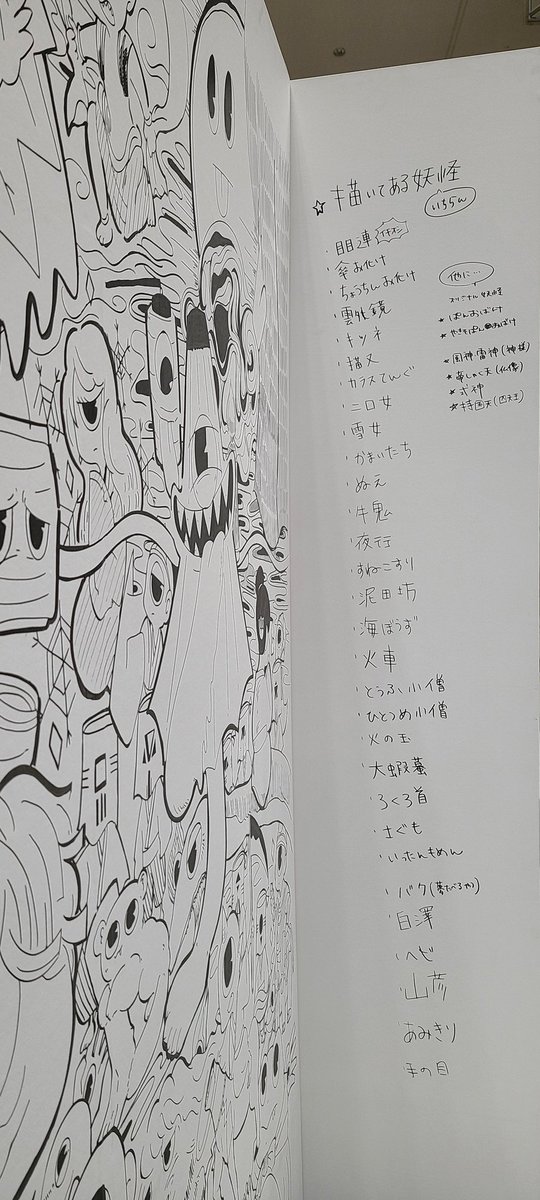 ☆描いてある妖怪
いちらん
・目目連 イチオシ
・傘お化け
・ちょうちんお化け
・雲外鏡
・キツネ
・猫又
・カラスてんぐ
・二口女
・雪女
・かまいたち
・ぬえ
・牛鬼
・夜行
・すねこすり
・泥田坊
・海ぼうず
・火車
・とうふ小僧
・ひとつめ小僧
・火の玉
・大蝦蟇
・ろくろ首
・土ぐも
・いったんもめん
・バク(夢たべるヤツ)
・白澤
・ヘビ
・山彦
・あみきり
・手の目
他に…
オリジナル妖怪
★ぱんおばけ
★やきそばぱんおばけ
★風神・雷神(神様)
(仏像)
★式神
★持国天(四天王)